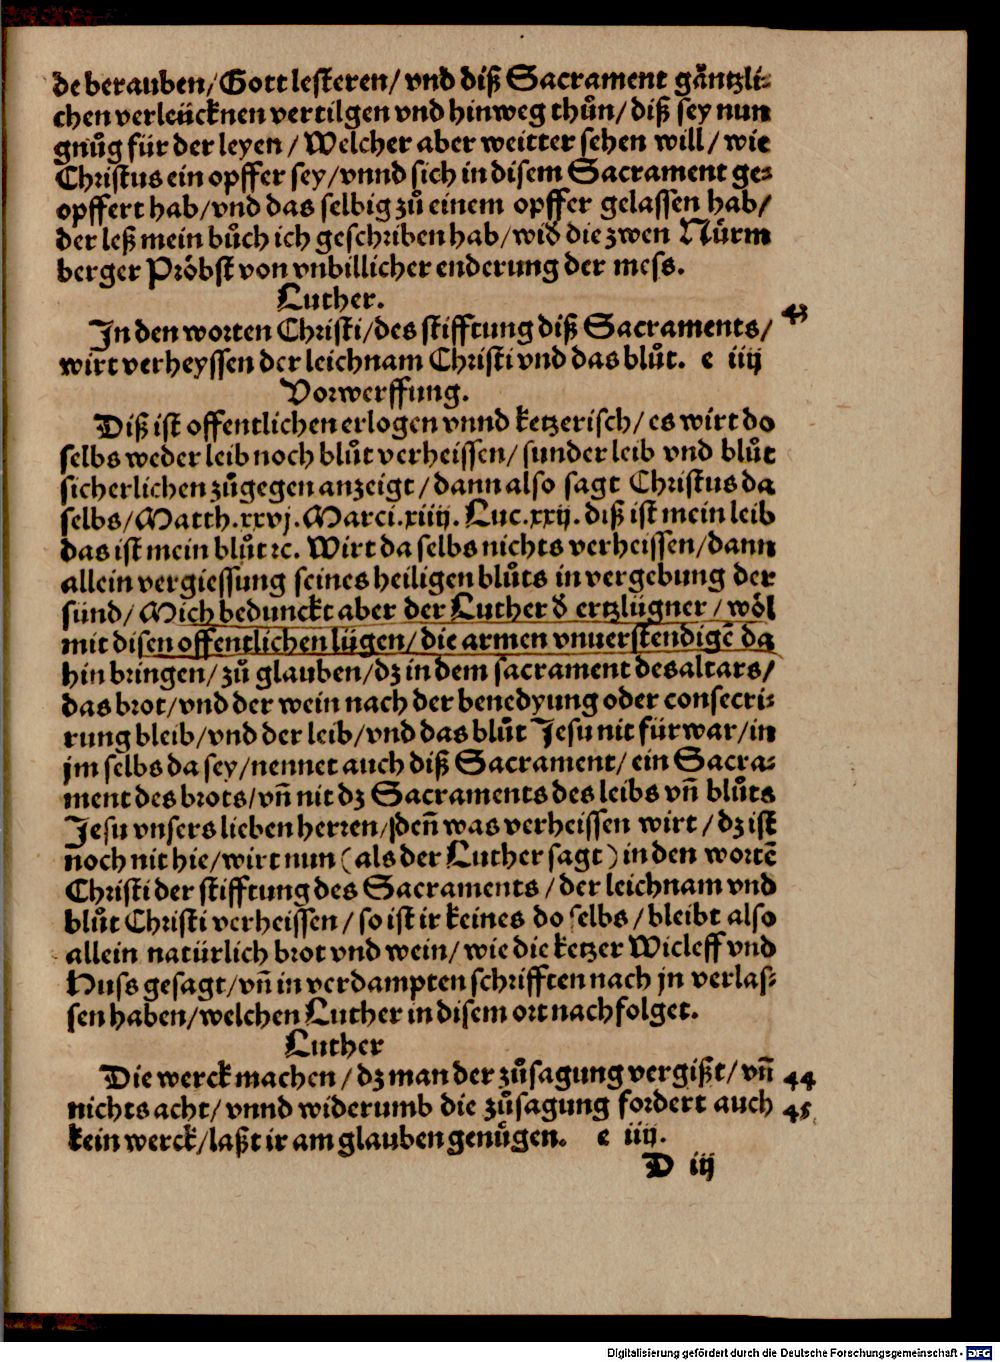 de berauben/Gott lesteren/vnd diß Sacrament gäntzli⸗
chen verleücknen vertilgen vnd hinweg thůn/diß sey nun
gnůg für der leyen/Welcher aber weitter sehen will/wie
Christus ein opffer sey/vnnd sich in disem Sacrament ge⸗
opffert hab/vnd das selbig zů einem opffer gelassen hab/
der leß mein bůch ich geschriben hab/wid die zwen Nürm
berger Pröbst von vnbillicher enderung der mess.
Luther.
In den worten Christi/des stifftung diß Sacraments/ 43
wirt verheyssen der leichnam Christi vnd das blůt. e iiij
Vorwerffung.
Diß ist offentlichen erlogen vnnd ketzerisch/es wirt do
selbs weder leib noch blůt verheissen/sunder leib vnd blůt
sicherlichen zůgegen anzeigt/dann also sagt Christus da
selbs/Matth.xxvj.Marci.xiiij.Luc.xxij. diß ist mein leib
das ist mein blůt ꝛc. Wirt da selbs nichts verheissen/dann
allein vergiessung seines heiligen blůts in vergebung der
sünd/Mich bedunckt aber der Luther d̄ ertzlügner/wöl
mit disen offentlichen lügen/die armen vnuerstendigē da
hin bringen/zů glauben/dz in dem sacrament des altars/
das brot/vnd der wein nach der benedyung oder consecri⸗
rung bleib/vnd der leib/vnd das blůt Jesu nit fürwar/in
jm selbs da sey/nennet auch diß Sacrament/ein Sacra⸗
ment des brots/vn̄ nit dz Sacraments des leibs vn̄ blůts
Jesu vnsers lieben herren/den̄ was verheissen wirt/dz ist
noch nit hie/wirt nun (als der Luther sagt) in den wortē
Christi der stifftung des Sacraments/der leichnam vnd
blůt Christi verheissen/so ist ir keines do selbs/bleibt also
allein natürlich brot vnd wein/wie die ketzer Wicleff vnd
Huss gesagt/vn̄ in verdampten schrifften nach jn verlas⸗
sen haben/welchen Luther in disem ort nachfolget.
Luther
Die werck machen/dz man der zůsagung vergißt/vn̄ 44
nichts acht/vnnd widerumb die zůsagung fordert auch 45
kein werck/laßt ir am glauben genůgen. e iiij.
D iij
Digitalisierung gefördert durch die Deutsche Forschungsgemeinschaft - DFG